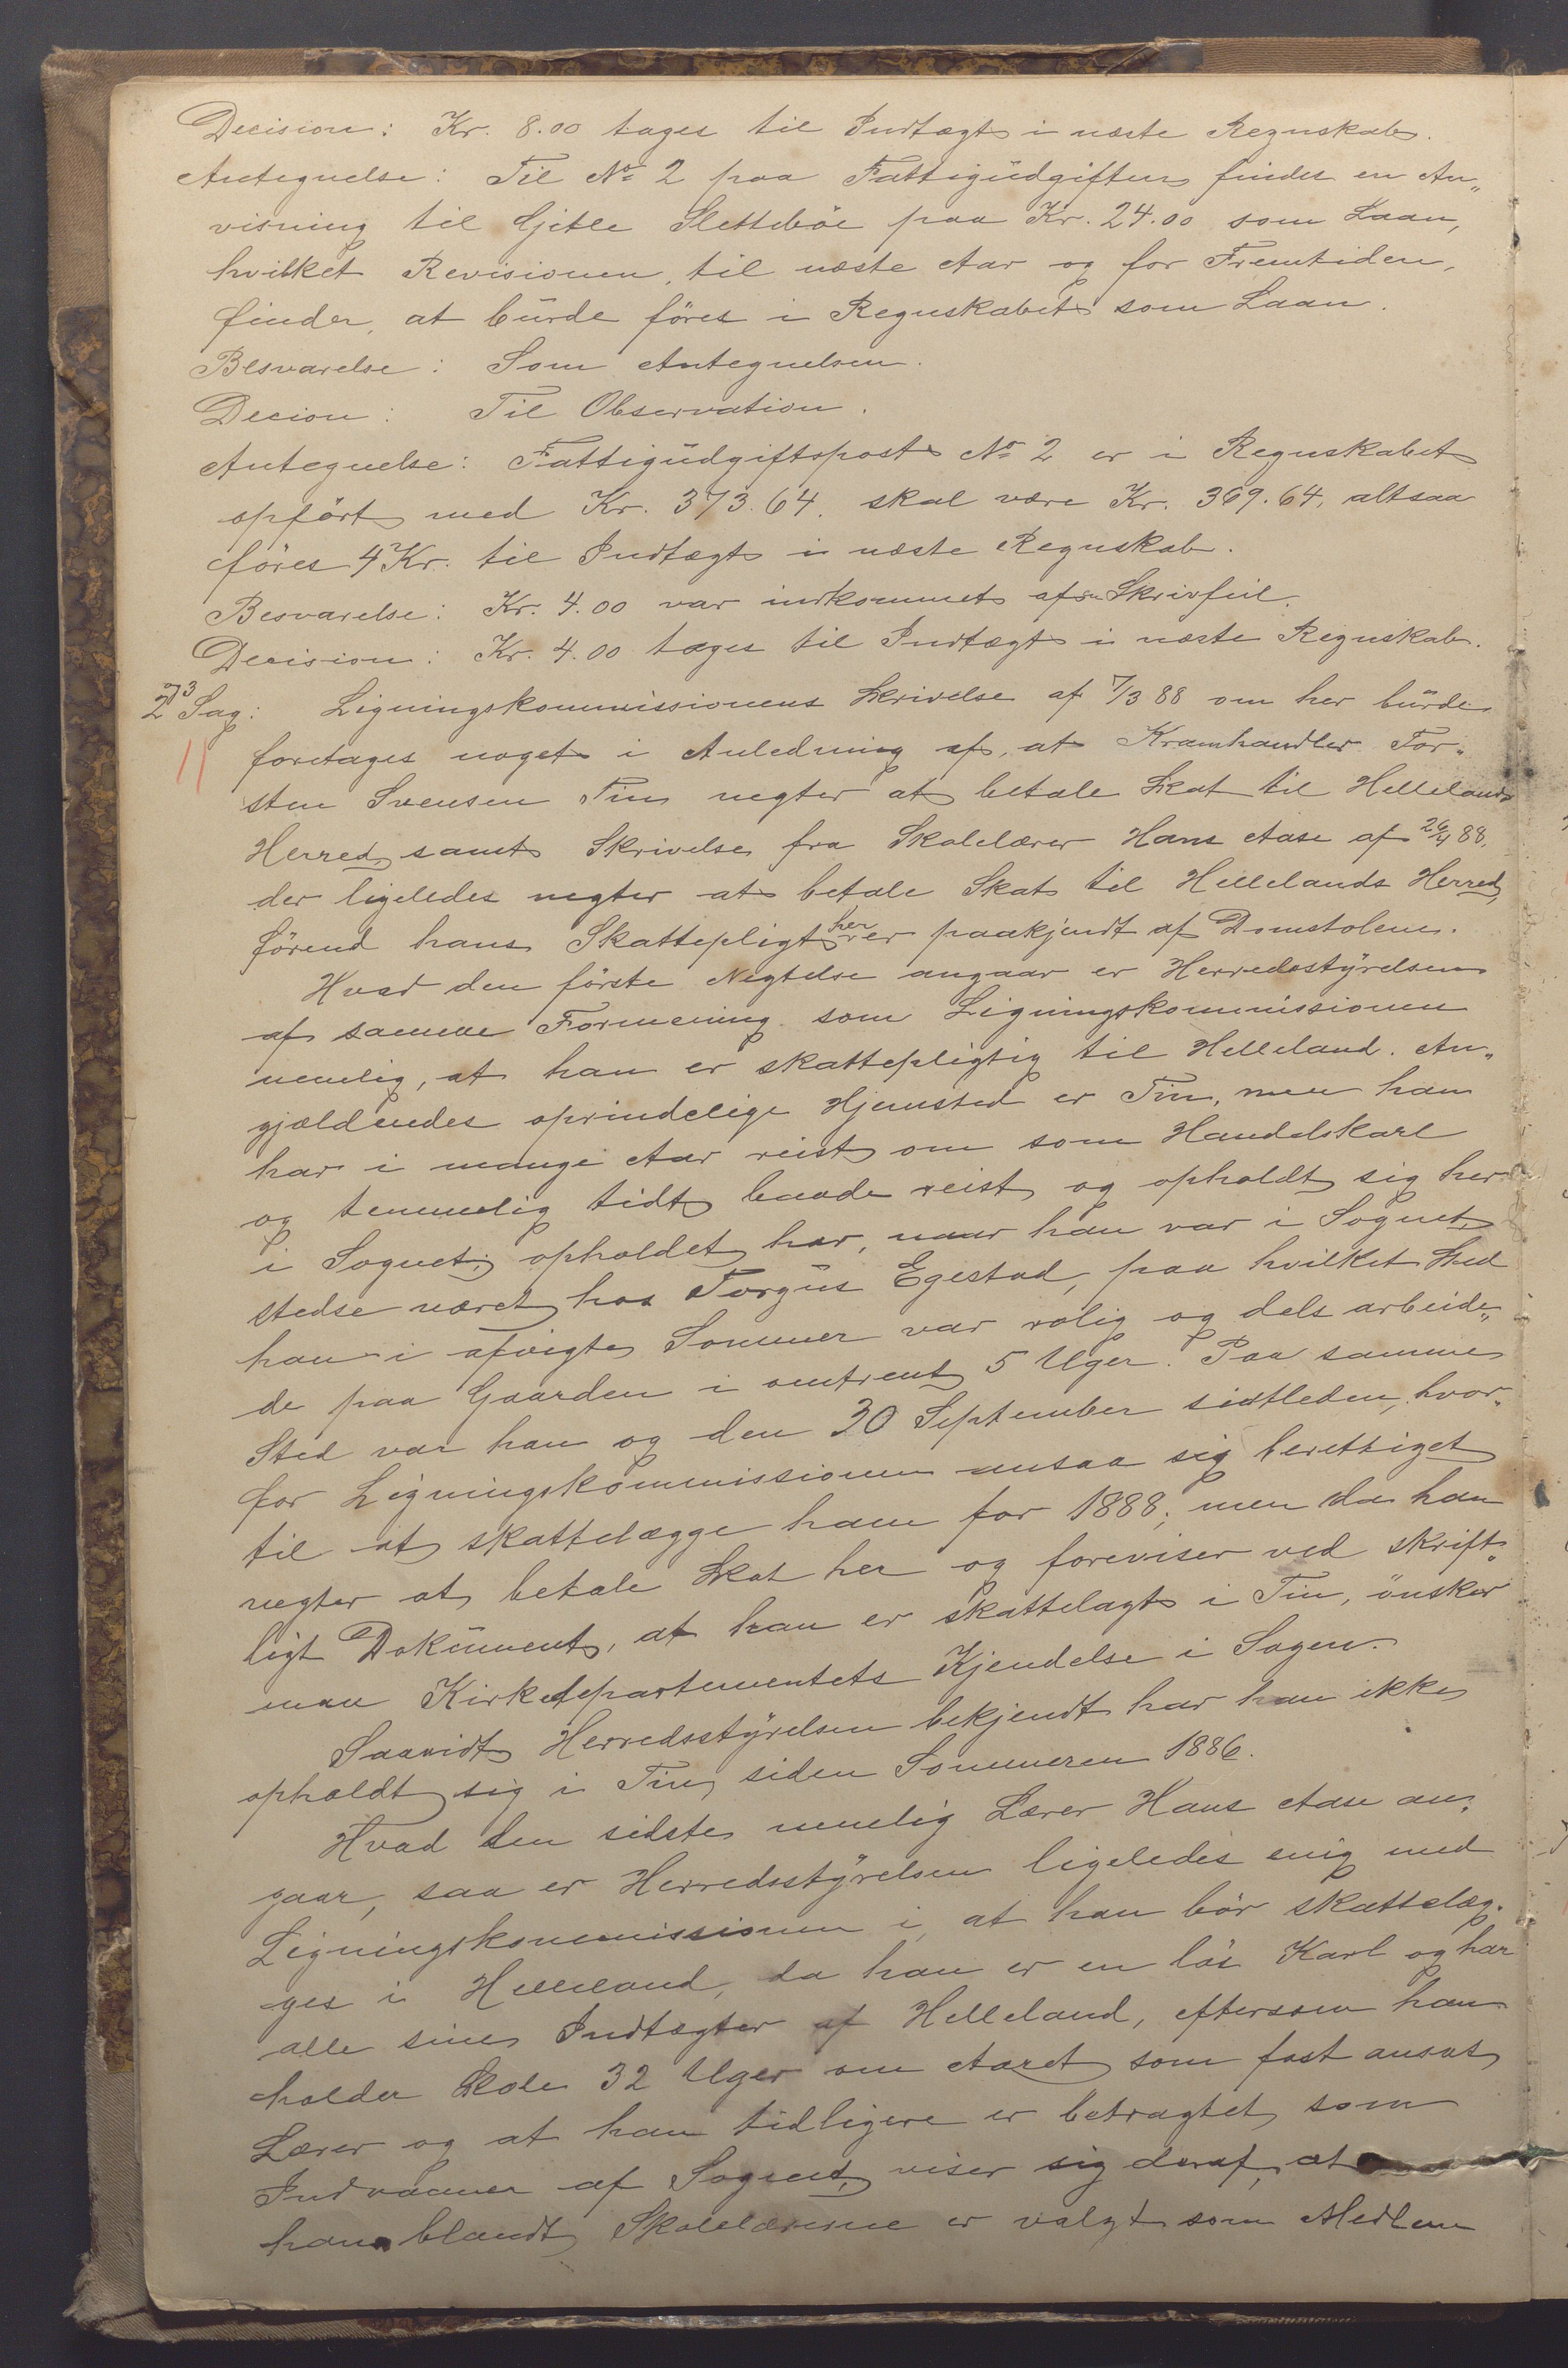 Decision: Kr. 8.00 tages til Indtægt i næste Regnskab.
Antegnelse: Til No 2 paa Fattigüdgiften findes en An„
visning til Gitle Slettebøe paa Kr. 24.00 som Laan,
hvilket Revisionen, til næste Aar og for Fremtiden,
finder, at bürde föres i Regnskabet som Laan.
Besvarelse: Som Antegnelsen.
Decion: Til Observation.
Antegnelse: Fattigüdgiftspost No 2 er i Regnskabet
opfört med Kr. 373.64. skal være Kr. 369.64, altsaa
föres 4 Kr. til Indtægt i næste Regnskab.
Besvarelse: Kr. 4.00 var indkommet af Skrivfeil.
Decision: Kr. 4.00 tages til Indtægt i næste Regnskab.
2 Sag: Ligningskommissionens Skrivelse af 7/3 88 om her bürde
11 foretages noget i Anledning af, at Kramhandler Tor„
sten Svensen Tin negter at betale Skat til Hellelands
Herred samt Skrivelse fra Skolelærer Hans Aase af 26/4 88,
der ligeledes negter at betale Skat til Hellelands Herred,
förend hans Skattepligt her er paakjendt af Domstolene.
Hvad den förste Negtelse angaar er Herredsstÿrelsen
af samme Formening som Ligningskommissionen
nemlig, at han er skattepligtig til Helleland. An„
gjældendes oprindelige Hjemsted er Tin, men han
har i mange Aar reist om som Handelskarl
og temmelig tidt baade reist og opholdt sig her
i Sognet; opholdet har, naar han var i Sognet,
stedse været hos Torgüs Egestad, paa hvilket Sted
han i afvigte Sommer var rolig og dels arbeide„
de paa Gaarden i omtrent 5 Uger. Paa samme
Sted var han og den 30 September sidstleden, hvor„
for Ligningskommissionen ansaa sig berettiget
til at skattelægge ham for 1888; men da han
negter at betale Skat her og foreviser ved skrift„
ligt Doküment, at han er skattelagt i Tin, önsker
man Kirkedepartementets Kjendelse i Sagen.
Saavidt Herredsstÿrelsen bekjendt har han ikke
opholdt sig i Tin siden Sommeren 1886.
Hvad den sidste nemlig Lærer Hans Aase an„
gaar, saa er Herredsstÿrelsen ligeledes enig med
Ligningskommissionen i, at han bör skattelæg„
ges i Helleland, da han er en lös Karl og har
alle sine Indtægter af Helleland, eftersom han
holder Skole 32 Uger om Aaret som fast ansat
Lærer og at han tidligere er betragtet som
Indvaaner af Sognet, viser sig deraf, at
han blandt Skolelærerne er valgt som Medlem